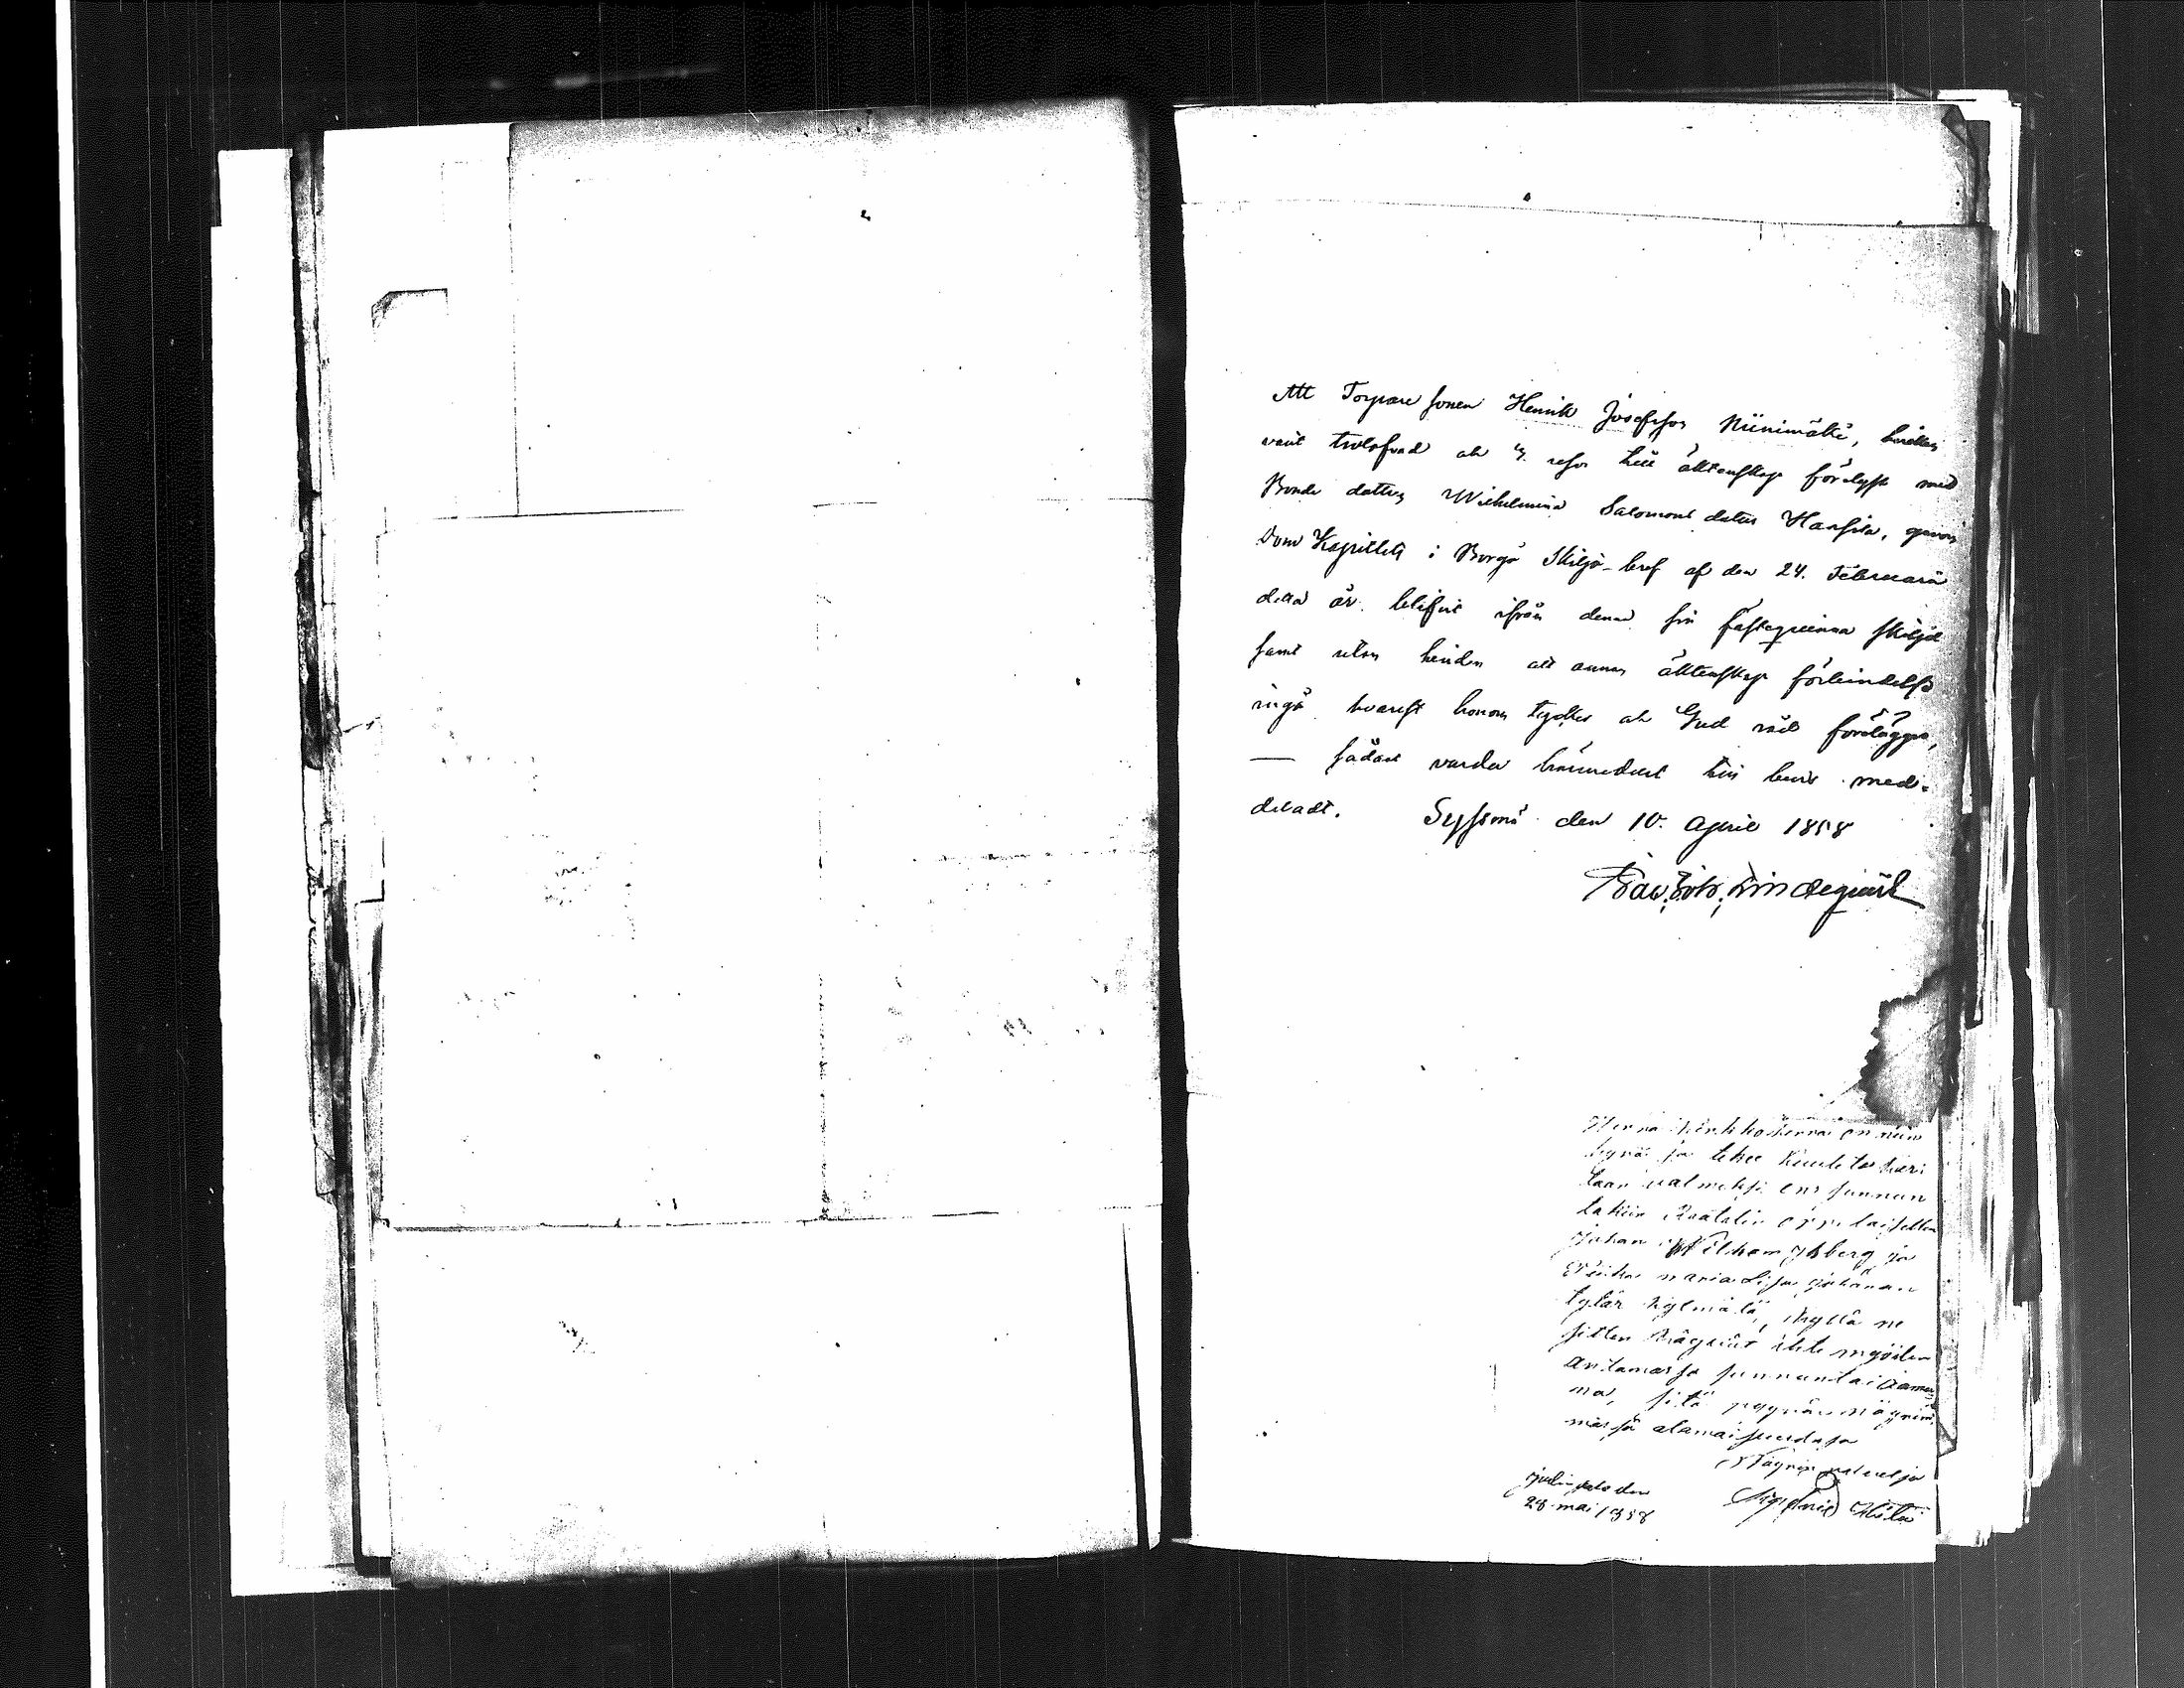 Att Torpare sonen Henrik Josefsson Niinimäki, hvilken
varit trolofvad och 3. resor till äktenskap förelyst med
Bonde dottren Wilhelmina Salomons dotter Hansila, genom
Dom Kapitlets i Borgå Skiljo-bref af den 24. Februarii
detta år blifvit ifrån denna sin fästeqvinna skiljd
samt utan hinder att annan äktenskaps förbindelse
ingå hvarest honom tyckes och Gud råd förelägger,
— sådant varder härmedelst till bevis med-
deladt. Sysmä den 10. April 1858
Herra Kirkkoherra on niin
hyvä ja tekee Kuulutus kirj
taan valmiksi ens sunnun
takiin Räätälin oppilaisellen
Johan Wilham Ykberg ja
Piika Maria Lisa Juhanan
tytär Kylmälä, Kyllä ne
sitten käyvät itte myöden
antamassa sunnuntai aamu
na, sitä pyydän nöyrim
mässä alamaisuudesa
Nöyrin palvelja
28 mai 1858